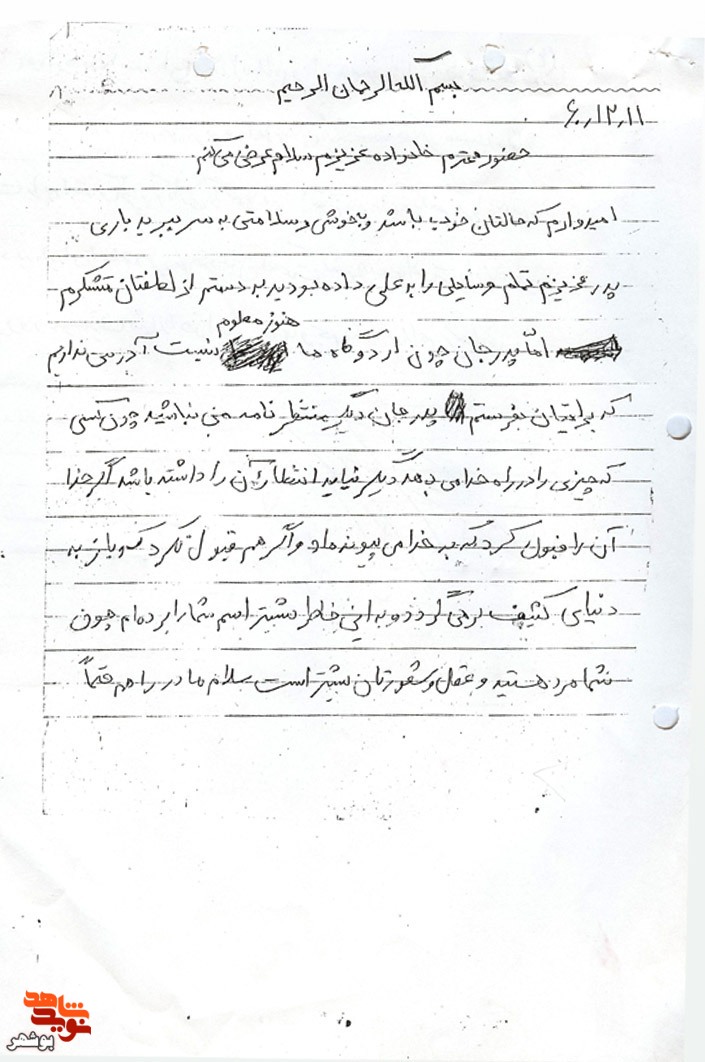 بسم الله الرحمان الرحیم
۶۰٫۱۲٫۱۱
حضور محترم خانواده عزیزم سلام عرض می‌کنم
امیدوارم که حالتان خوب باشد و بخوشی و سلامتی به سر ببرید باری
پدر عزیزم تمام وسایلی را به علی داده بودید بدستم از لطفتان متشکرم
هنوز معلوم
امّا پدر جان چون اردوگاه ما نیست آدرسی نداریم
که برایتان بفرستم پدر جان دیگر منتظر نامه من نباشید چون کسی
که چیزی را در راه خدا می دهد دیگر نباید انتظار آن را داشته باشد اگر خدا
آن را قبول کرد که به خدا می پیوندد و اگر هم قبول نکرد که باز به
دنیای کثیف برمی‌گردد و به این خاطر بیشتر اسم شما را برده‌ام چون
شما مرد هستید و عقل و شعورتان بیشتر است سلام مادر را هم حتماً
شاهد
نوید
بوشهر